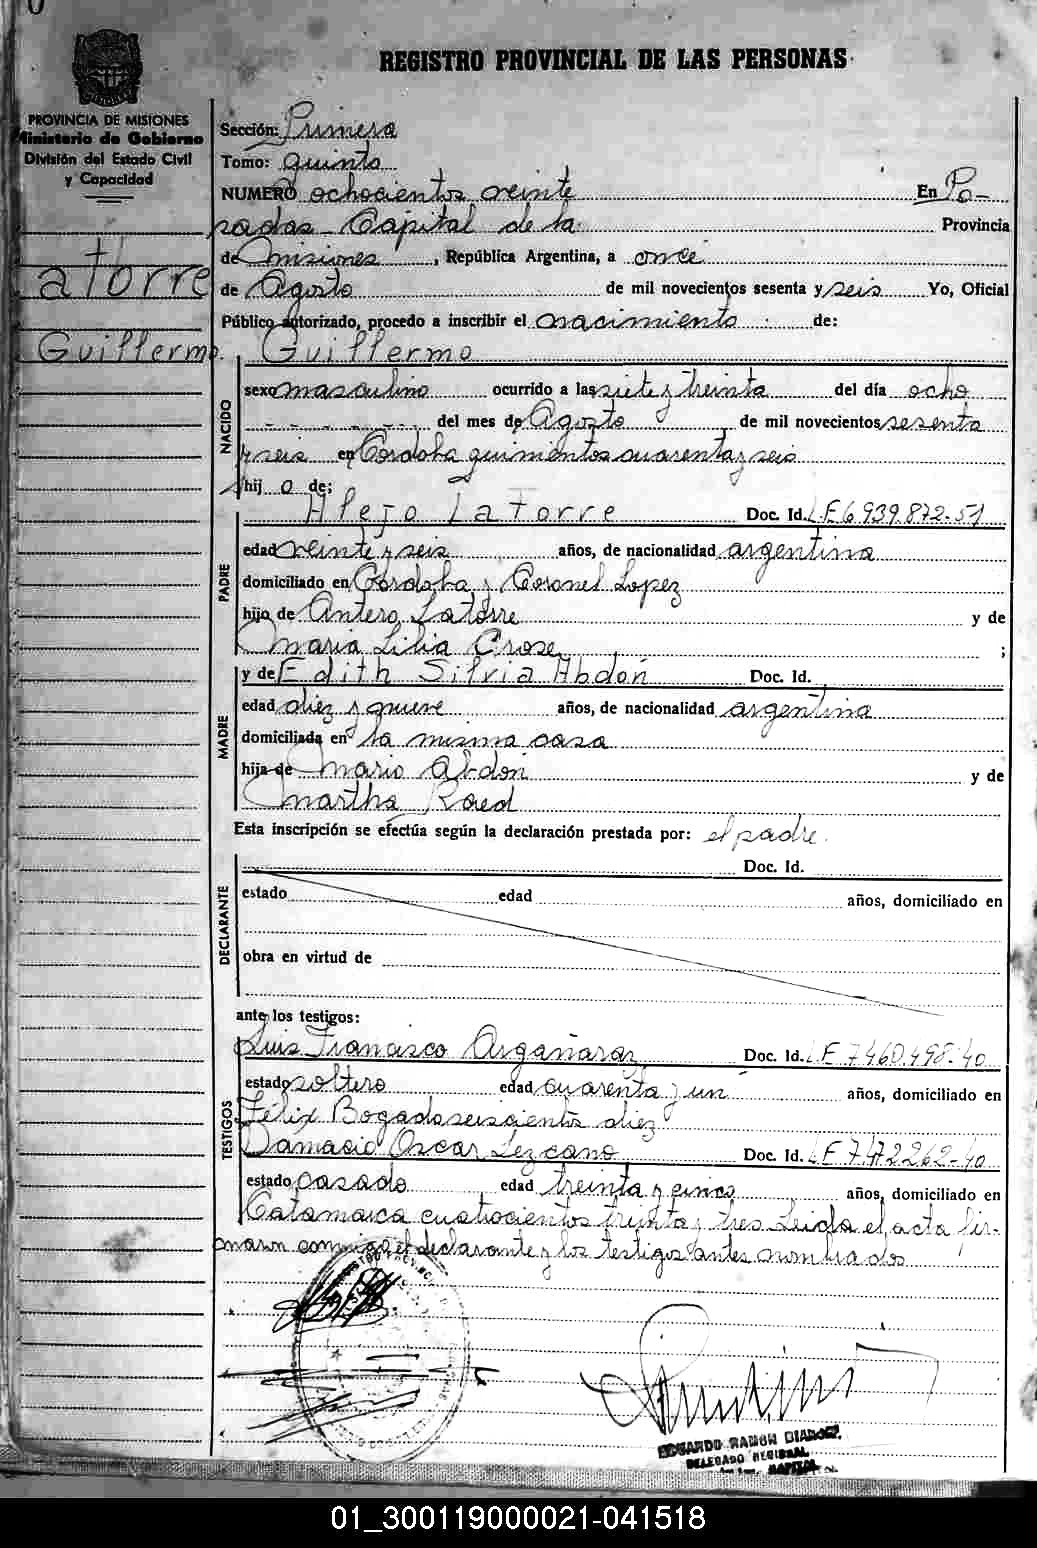 REGISTRO PROVINCIAL DE LAS PERSONAS
PROVINCIA DE MISIONES
Ministerio de Gobierno
División del Estado Civil
y Capacidad
Latorre
Guillermo
Sección: Primera
Tomo: quinto
NUMERO ochocientos veinte En Po-
sadas - Capital de la Provincia
de Misiones, República Argentina, a once
de Agosto de mil novecientos sesenta y seis Yo, Oficial
Público autorizado, procedo a inscribir el nacimiento de:
Guillermo
NACIDO
sexo masculino ocurrido a las siete y treinta del día ocho
del mes de Agosto de mil novecientos sesenta
y seis en Cordoba quinientos cuarenta y seis
hijo de;
PADRE
Alejo Latorre Doc. Id. L.E 6.939.872-51
edad veinte y seis años, de nacionalidad argentina
domiciliado en Córdoba y Coronel Lopez
hijo de Antero Latorre y de
Maria Lilia Crose ;
MADRE
y de Edith Silvia Abdon Doc. Id.
edad diez y nueve años, de nacionalidad argentina
domiciliada en la misma casa
hija de Mario Abdon y de
Martha Raed
Esta inscripción se efectúa según la declaración prestada por: el padre.
DECLARANTE
Doc. Id.
estado edad años, domiciliado en
obra en virtud de
ante los testigos:
TESTIGOS
Luis Francisco Argañaraz Doc. Id. L.E. 7.460.498-40
estado soltero edad cuarenta y un años, domiciliado en
Félix Bogado seiscientos diez
Damacio Oscar Lezcano Doc. Id. L.E 7.472.262-40
estado casado edad treinta y cinco años, domiciliado en
Catamarca cuatrocientos treinta y tres Leida el acta fir-
maron conmigo el declarante y los testigos antes nombrados
EDUARDO RAMON
DELEGADO REGIONAL
CAPITAL
01_300119000021-041518